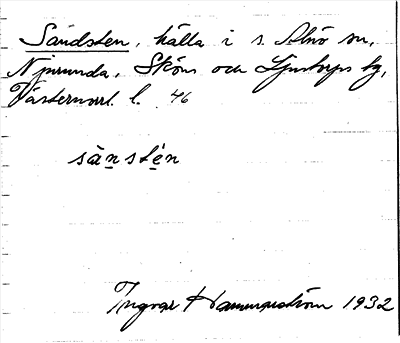 Sandsten, källa i s. Alnö sn,
Njurunda, Sköns och Ljustorps tg,
Västernorrl. l. 46
sànstén
Ingvar Hammarström 1932